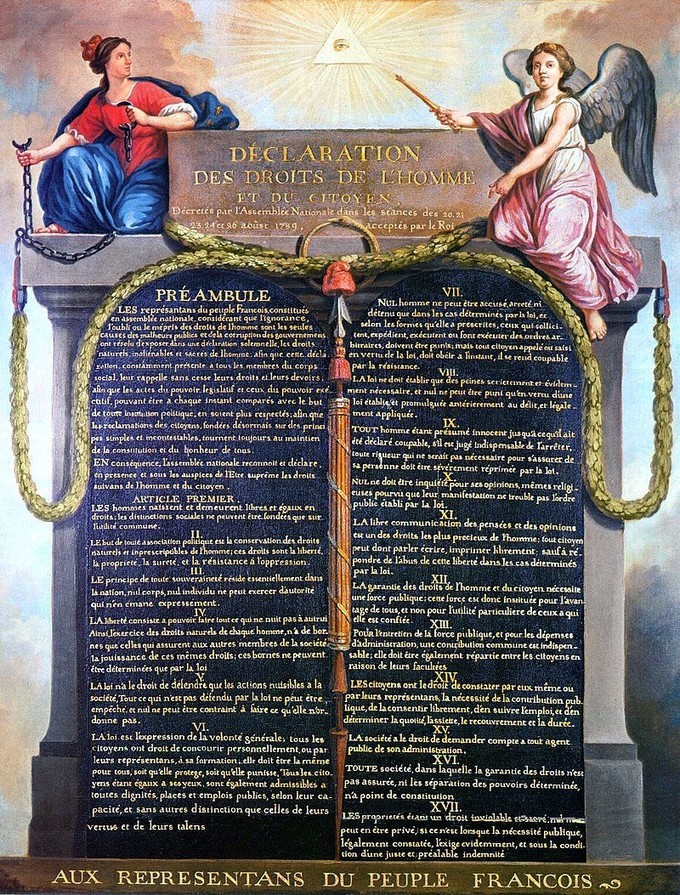 DÉCLARATION
DES DROITS DE L'HOMME
ET DU CITOYEN,
Décretés par l'Assemblée Nationale dans les séances des 20. 21
23. 24 et 26 août 1789, acceptés par le Roi
PRÉAMBULE
LES représantans du peuple Francois, constitués
en assemblée nationale, considérant que l'ignorance,
l'oubli ou le mépris des droits de l'homme sont les seules
causes des malheurs publics et de la corruption des gouvernemens
ont résolu d'exposer dans une déclaration solemnelle, les droits
naturels, inaliénables et sacrés de l'homme, afin que cette décla-
ration, constamment présente a tous les membres du corps
social, leur rappelle sans cesse leurs droits et leurs devoirs;
afin que les actes du pouvoir legislatif et ceux du pouvoir exé-
cutif, pouvant être a chaque instant comparés avec le but
de toute institution politique, en soient plus respectés; afin que
les reclamations des citoyens, fondées désormais sur des princi-
pes simples et incontestables, tournent toujours au maintien
de la constitution et du bonheur de tous.
EN conséquence, l'assemblée nationale reconnoit et déclare,
en presence et sous les auspices de l'Etre suprême les droits
suivans de l'homme et du citoyen.
ARTICLE PREMIER.
LES hommes naissent et demeurent libres et égaux en
droits; les distinctions sociales ne peuvent être fondées que sur
l'utilité commune.
II.
LE but de toute association politique est la conservation des droits
naturels et inprescriptibles de l'homme; ces droits sont la liberté,
la propriété, la sureté, et la résistance à l'oppression.
III.
LE principe de toute souveraineté réside essentiellement dans
la nation, nul corps, nul individu ne peut exercer d'autorité
qui n'en émane expressement.
IV.
LA liberté consiste a pouvoir faire tout ce qui ne nuit pas à autrui
Ainsi, l'exercice des droits naturels de chaque homme, n'a de bor-
nes que celles qui assurent aux autres membres de la société
la jouissance de ces mêmes droits; ces bornes ne peuvent
être déterminées que par la loi
V.
LA loi n'a le droit de défendre que les actions nuisibles a la
société. Tout ce qui n'est pas défendu par la loi ne peut être
empêché, et nul ne peut être contraint à faire ce qu'elle n'or-
donne pas.
VI.
LA loi est l'expression de la volonté générale; tous les
citoyens ont droit de concourir personnellement, ou par
leurs représentans, à sa formation; elle doit être la même
pour tous, soit qu'elle protege, soit qu'elle punisse. Tous les cito-
yens étant égaux a ses yeux, sont également admissibles a
toutes dignités, places et emplois publics, selon leur ca-
pacité, et sans autres distinction que celles de leurs
vertus et de leurs talens
VII.
NUL homme ne peut être accusé, arreté ni
détenu que dans les cas déterminés par la loi, et
selon les formes qu'elle a prescrites, ceux qui sollici-
tent, expédient, exécutent ou font exécuter des ordres ar-
bitraires, doivent être punis; mais tout citoyen appelé ou saisi
en vertu de la loi, doit obéir a l'instant, il se rend coupable
par la résistance.
VIII.
LA loi ne doit établir que des peines strictement et évidem-
ment nécessaire, et nul ne peut être puni qu'en vertu d'une
loi établie et promulguée antérierement au délit, et légale-
ment appliquée.
IX.
TOUT homme étant présumé innocent jusqu'a ce qu'il ait
été déclaré coupable, s'il est jugé indispensable de l'arrêter,
toute rigueur qui ne serait pas nécessaire pour s'assurer de
sa personne doit être sévérement réprimée par la loi.
X.
NUL ne doit être inquiété pour ses opinions, mêmes religi-
euses pourvu que leur manifestation ne trouble pas l'ordre
public établi par la loi.
XI.
LA libre communication des pensées et des opinions
est un des droits les plus precieux de l'homme; tout citoyen
peut dont parler écrire, imprimer librement; sauf à ré-
pondre de l'abus de cette liberté dans les cas déterminés
par la loi.
XII.
LA garantie des droits de l'homme et du citoyen nécessite
une force publique; cette force est donc instituée pour l'avan-
tage de tous, et non pour l'utilité particuliere de ceux a qui
elle est confiée.
XIII.
Pour l'entretien de la force publique, et pour les dépenses
d'administration, une contribution commune est indispen-
sable; elle doit être également répartie entre les citoyens en
raison de leurs facultées
XIV.
LES citoyens ont le droit de constater par eux même ou
par leurs représentans, la nécessité de la contribution pub-
lique, de la consentir librement, d'en suivre l'emploi, et d'en
déterminer la quotité, l'assiette, le recouvrement et la durée.
XV.
LA société a le droit de demander compte a tout agent
public de son administration.
XVI.
TOUTE société, dans laquelle la garantie des droits n'est
pas assurée, ni les séparation des pouvoirs déterminée,
n'a point de constitution
XVII.
LES proprietés étant un droit inviolable et sacré, nul ne
peut en être privé, si ce n'est lorsque la nécessité publique,
légalement constatée, l'exige evidemment, et sous la condi-
tion d'une juste et préalable indemnité
AUX REPRESENTANS DU PEUPLE FRANCOIS